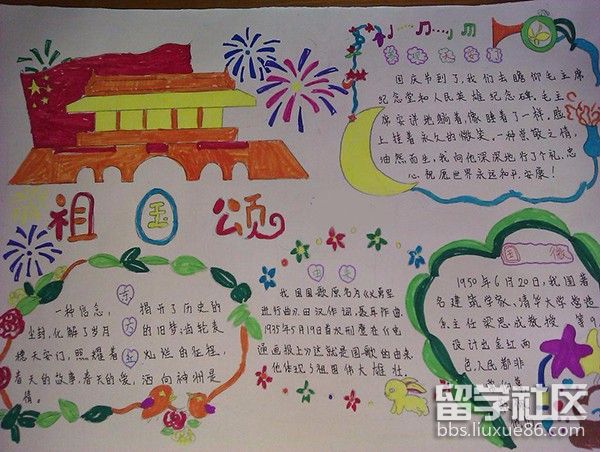 祖国颂
国庆节到了,我们去瞻仰毛主席
纪念堂和人民英雄纪念碑。毛主
席安详地躺着,像睡着了一样,脸
上挂着永久的微笑,一种崇敬之情,
油然而生,我向他深深地行了个礼,忠
心祝愿世界永远和平,安康!
一种信念,
揭开了历史的
尘封,化解了岁月
的旧梦,齿轮表
穗天安门,照耀着
灿烂的征程,
春天的故事,春天的爱,洒向神州是
情。
我国国歌原名为《义勇军
进行曲》,田汉作词,聂耳作曲.
1935年5月19日首次刊鹿在《电
通画报上》,这就是国歌的由来
他体现3祖国伟大雄壮.
国徽
1950年6月20日,我国著
名建筑学家、清华大学营造
系主任梁思成教授 等9
设计出金红两
色,人民都非
留学社区
bbs.liuxue86.com